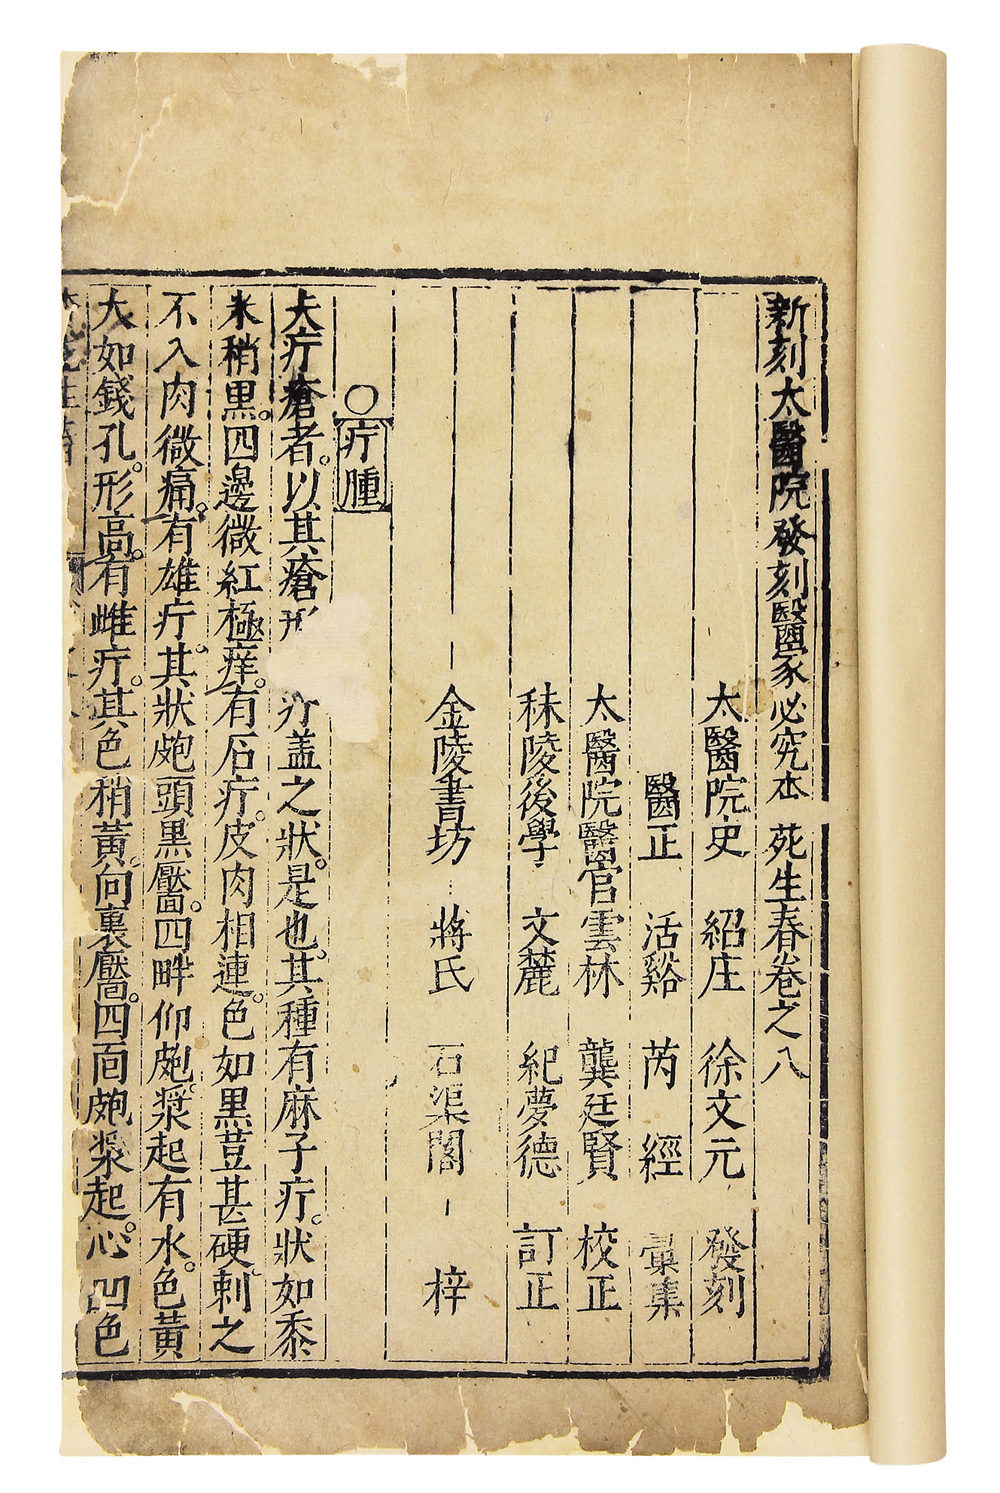 新刻太醫院發刻醫家必究本 苑生春卷之八
太醫院史 紹庄 徐文元 發刻
醫正 活谿 芮 經 彙集
太醫院醫官雲林 龔廷賢 校正
秣陵後學 文麓 紀夢德 訂正
金陵書坊 蔣氏 石渠閣 梓
○疔腫
夫疔瘡者。以其瘡形 疔蓋之狀。是也。其種有麻子疔。狀如黍
米稍黑。四邊微紅極痒。有石疔。皮肉相連。色如黑荳甚硬。刺之
不入肉微痛。有雄疔。其狀皰頭黑靨。四畔仰皰。漿起有水。色黃
大如錢孔。形高。有雌疔。其色稍黃。向裏靨。四面皰漿起。心凹色